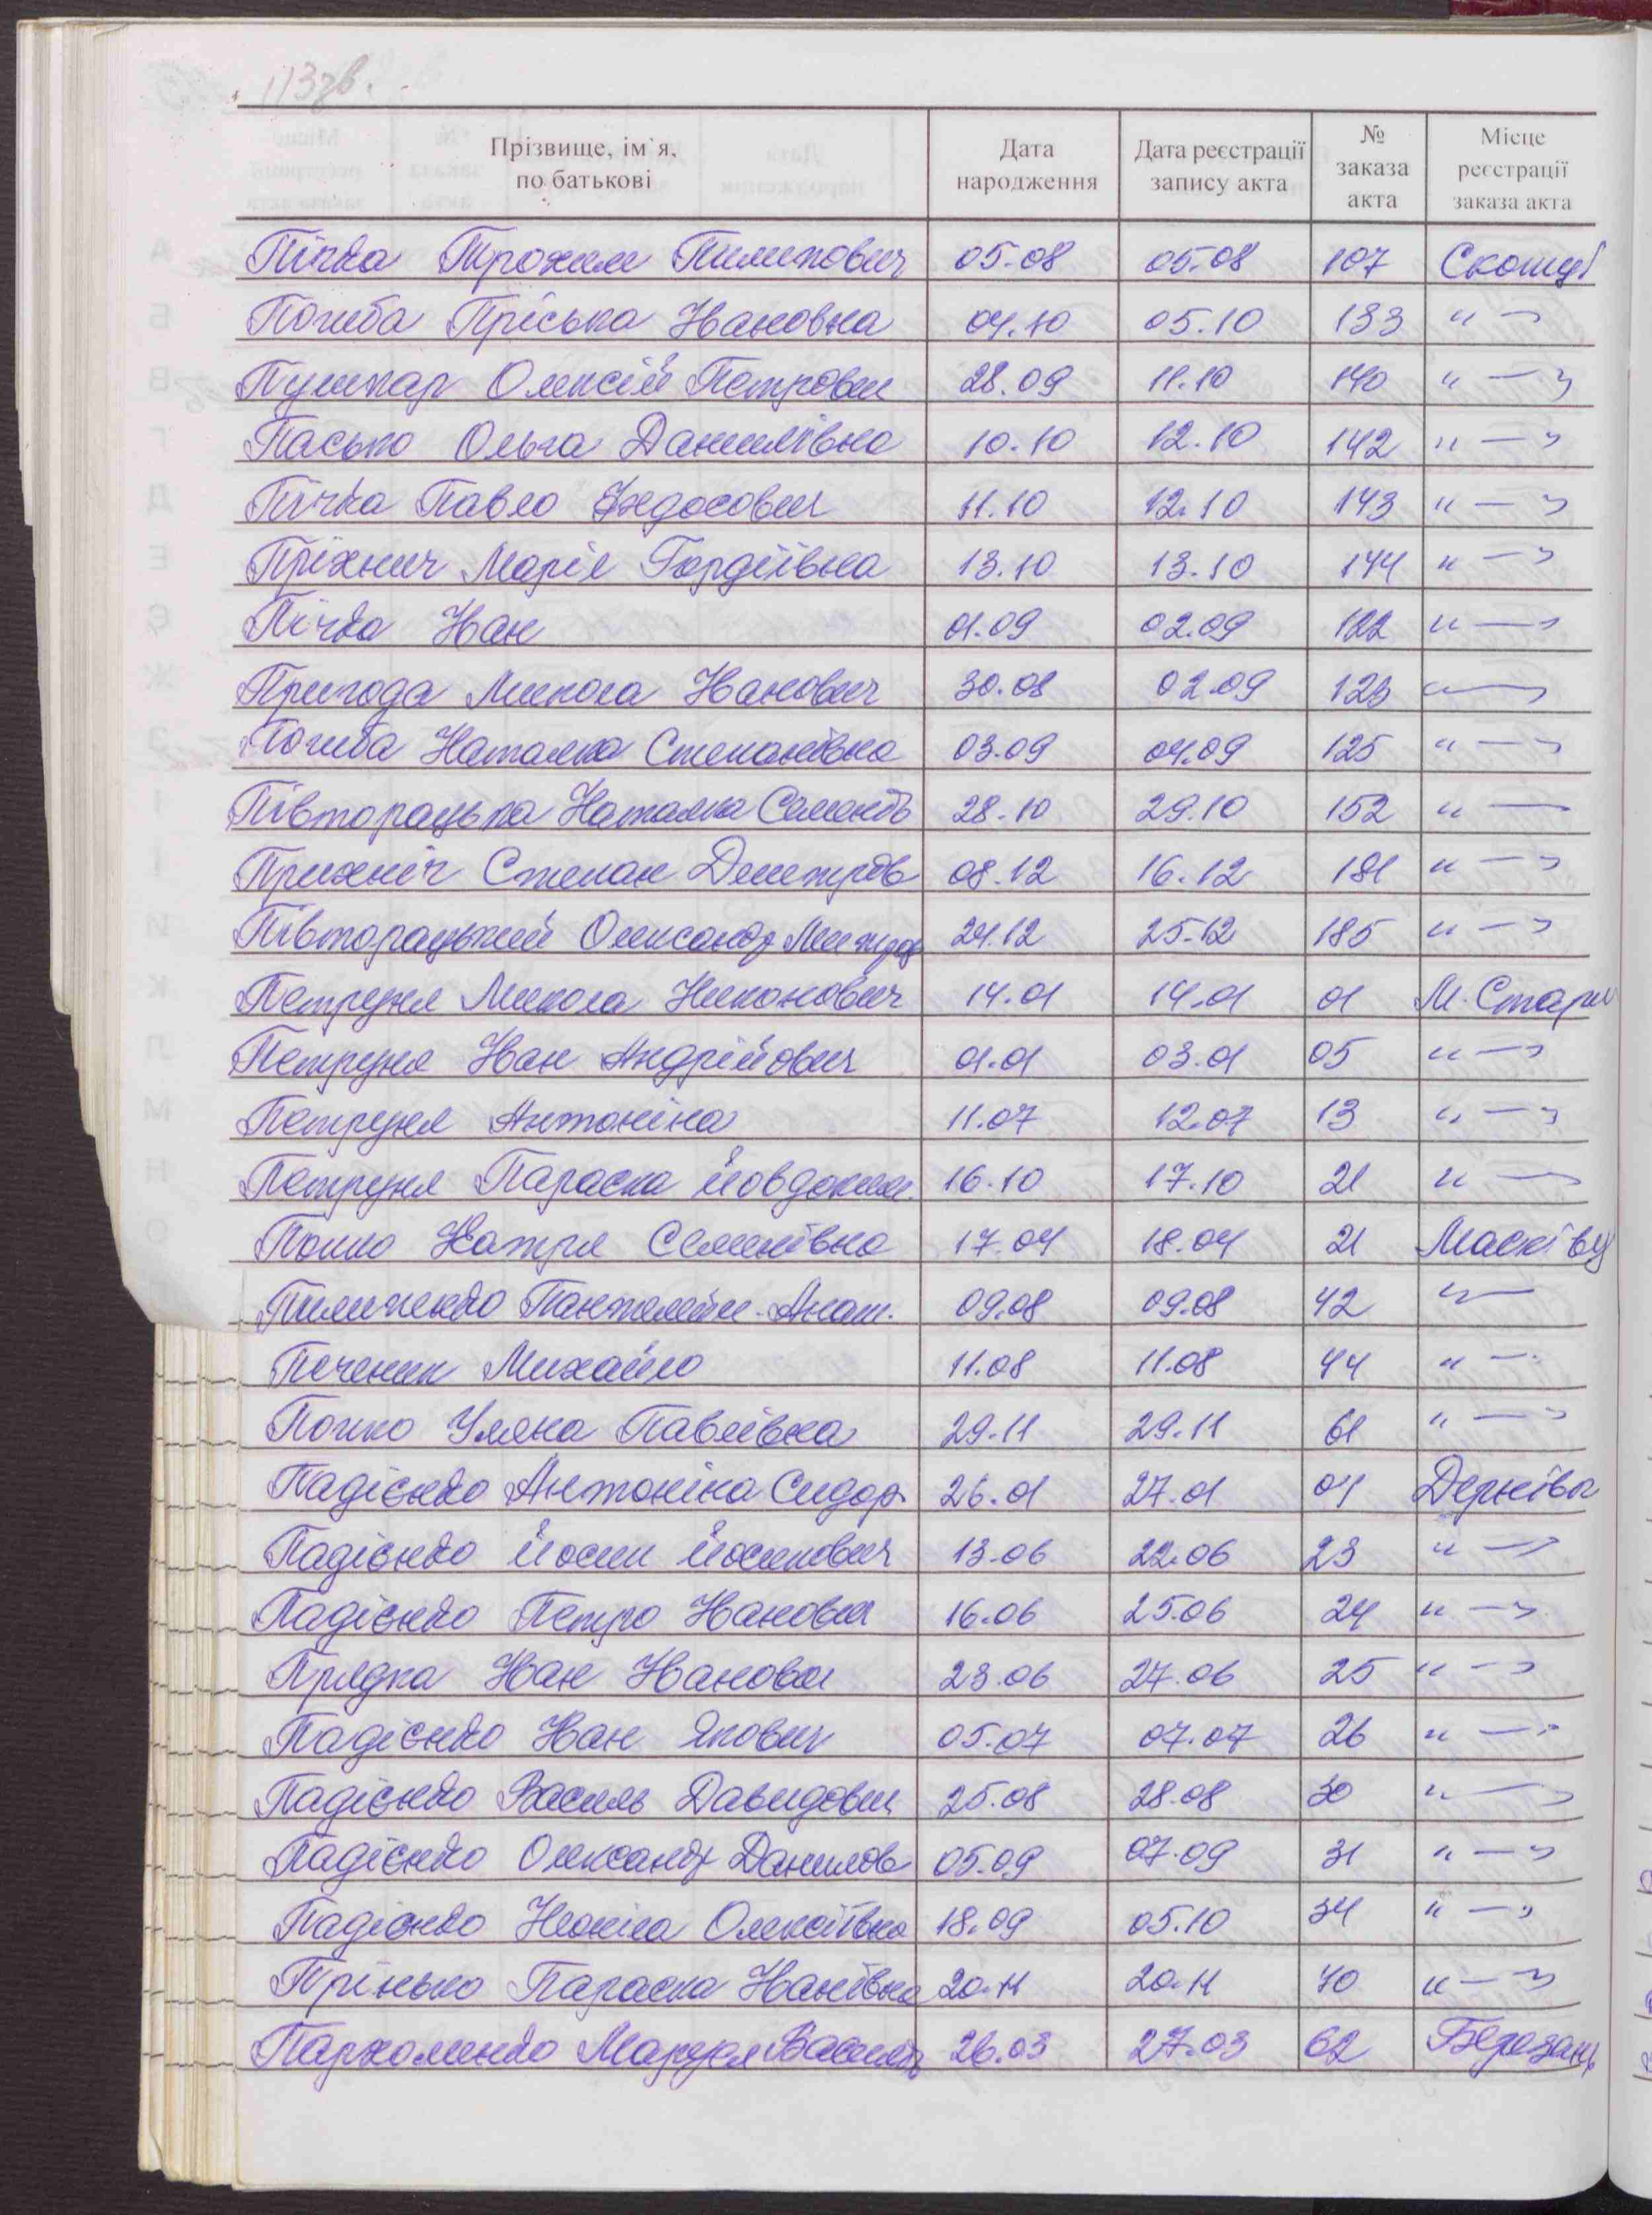 113зв.
Прізвище, ім`я, по батькові Дата народження Дата реєстрації запису акта № заказа акта Місце реєстрації заказа акта
Пічка Трохим Пилипович 05.08 05.08 107 Скопці
Погиба Пріська Івановна 04.10 05.10 133 " —"
Пушкар Олексій Петрович 28.09 11.10 140 " —"
Пасько Ольга Данилівна 10.10 12.10 142 " —"
Пічка Павло Федосович 11.10 12.10 143 " —"
Пріхнич Марія Гордіївна 13.10 13.10 144 " —"
Пічка Іван 01.09 02.09 122 " —"
Пригода Микола Іванович 30.08 02.09 123 " —"
Погиба Наталка Степанівна 03.09 04.09 125 " —"
Півторацька Наталка Семенів 28.10 29.10 152 " —
Прихніч Степан Дмитров 08.12 16.12 181 " —"
Півторацький Олександр 24.12 25.12 185 " —"
Петруня Микола Никонович 14.01 14.01 01 М. Стари
Петруня Іван Андрійович 01.01 03.01 05 " —"
Петруня Антоніна 11.07 12.07 13 " —"
Петруня Параска Йовдоким. 16.10 17.10 21 " —
Попко Катря Семенівна 17.04 18.04 21 Масківц
Пилипенко Пантелейм. Анат. 09.08 09.08 42 " —
Печеник Михайло 11.08 11.08 44 " —"
Попко Уляна Павлівна 29.11 29.11 61 " —"
Падієнко Антоніна Сидор. 26.01 27.01 04 Дернівка
Падієнко Йосип Йосипович 13.06 22.06 23 " —"
Падієнко Петро Іванович 16.06 25.06 24 " —"
Прядка Іван Іванович 23.06 27.06 25 " —"
Падієнко Іван Якович 05.07 07.07 26 " —"
Падієнко Василь Давидович 25.08 28.08 30 " —"
Падієнко Олександр Данилов 05.09 07.09 31 " —"
Падієнко Неоніла Олексіївна 18.09 05.10 34 " —"
Прінько Параска Іванівна 20.11 20.11 40 " —"
Пархоменко Маруся Василів 26.03 27.03 62 Березань